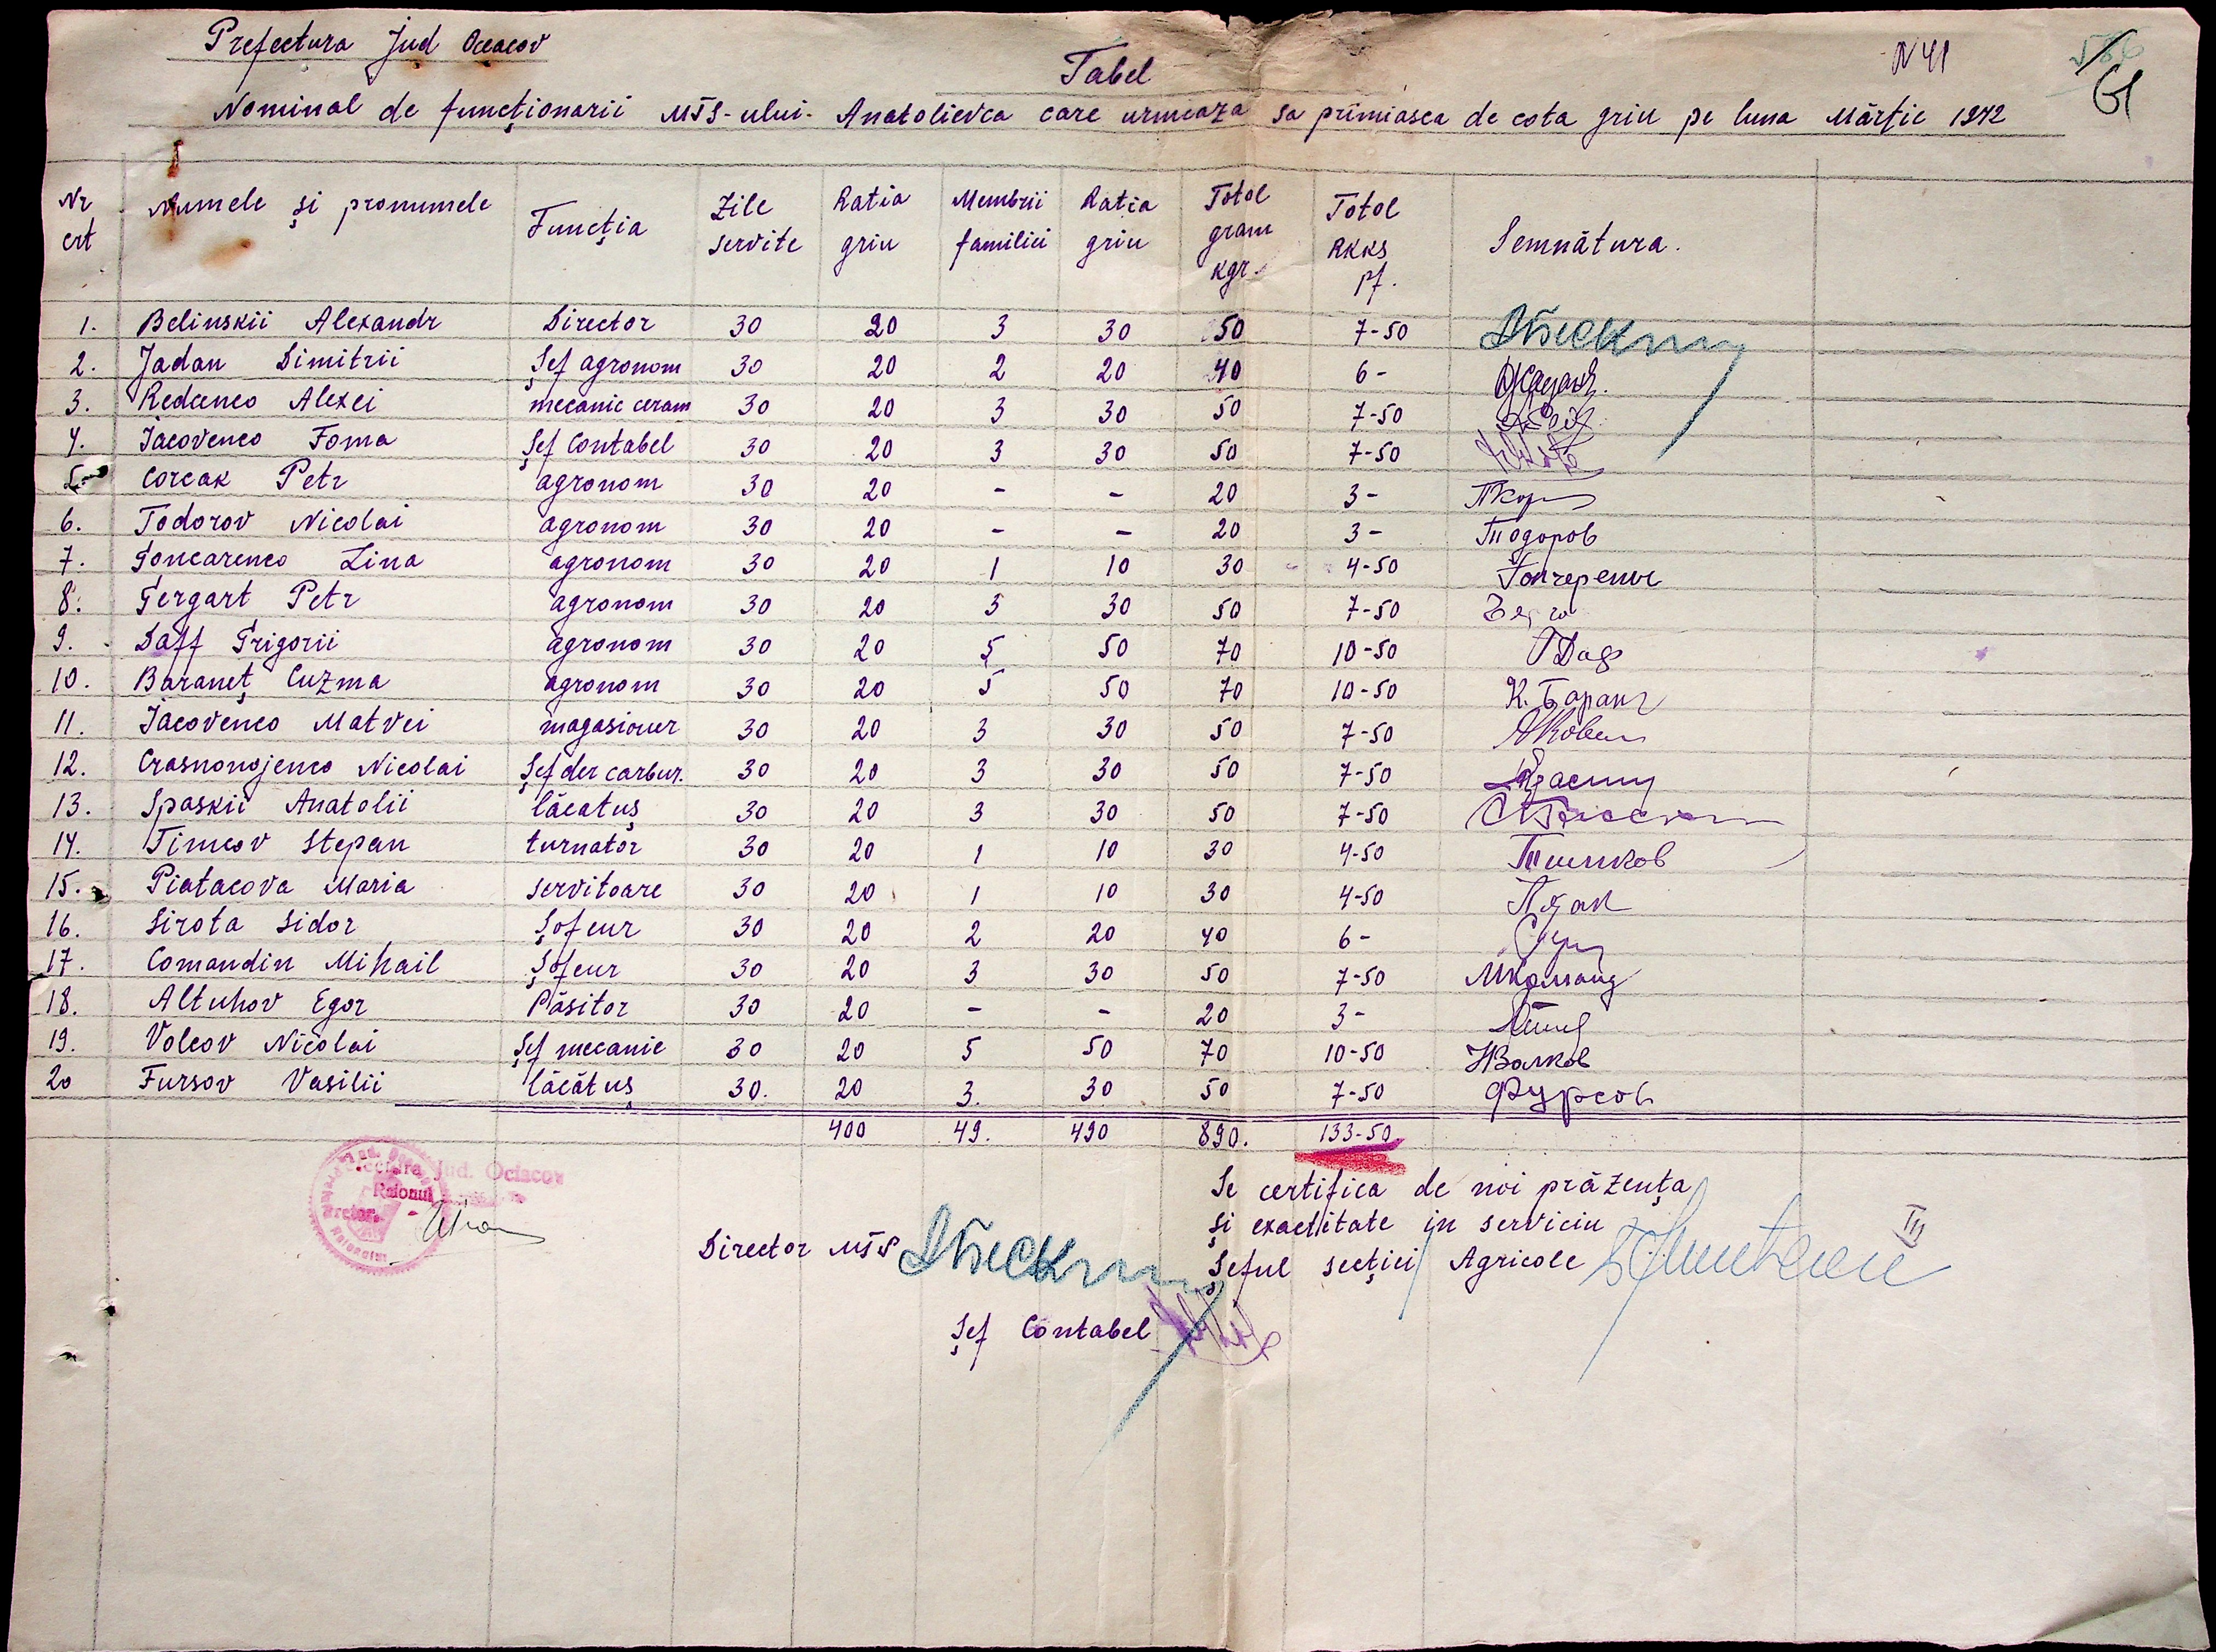 Prefectura Jud Oceacov
N 41
61
Tabel
Nominal de funcţionarii MTS-ului. Anatolievca care urmeaza sa primiasca de cota griu pe luna Mărţie 1942
Nr crt Numele şi pronumele Funcţia Zile servite Ratia griu Membrii familiei Ratia griu Totol gram kgr. Totol RKKS pf. Semnătura.
1. Belinskii Alexandr Director 30 20 3 30 50 7-50
2. Jadan Dimitrii Şef agronom 30 20 2 20 40 6- Жадан
3. Redcenco Alexei mecanic ceram 30 20 3 30 50 7-50
4. Iacovenco Foma Şef Contabel 30 20 3 30 50 7-50
5. Corcak Petr agronom 30 20 - - 20 3- ПКор
6. Todorov Nicolai agronom 30 20 - - 20 3- Тодоров
7. Goncarenco Zina agronom 30 20 1 10 30 4-50
8. Gergart Petr agronom 30 20 3 30 50 7-50
9. Daff Grigorii agronom 30 20 5 50 70 10-50
10. Baraneţ Cuzma agronom 30 20 5 50 70 10-50 К. Баранец
11. Iacovenco Matvei magasioner 30 20 3 30 50 7-50
12. Crasnonojenco Nicolai Şef der carbur. 30 20 3 30 50 7-50
13. Spaskii Anatolii lăcatuş 30 20 3 30 50 7-50
14. Timcov Stepan turnator 30 20 1 10 30 4-50 Тимков
15. Piatacova Maria servitoare 30 20 1 10 30 4-50 Пятак
16. Sirota Sidor Şofeur 30 20 2 20 40 6-
17. Comandin Mihail Şofeur 30 20 3 30 50 7-50 МКоманд
18. Altuhov Egor Păsitor 30 20 - - 20 3-
19. Volcov Nicolai Şef mecanic 30 20 5 50 70 10-50 НВолков
20 Fursov Vasilii lăcătuş 30. 20 3. 30 50 7-50 Фурсов
400 49. 490 890. 133-50
Jud. Ociacov
Raionul
Se certifica de noi prăzenţa
şi exactitate in serviciu
Director MTS
Şeful secţiei Agricole
Şef Contabel